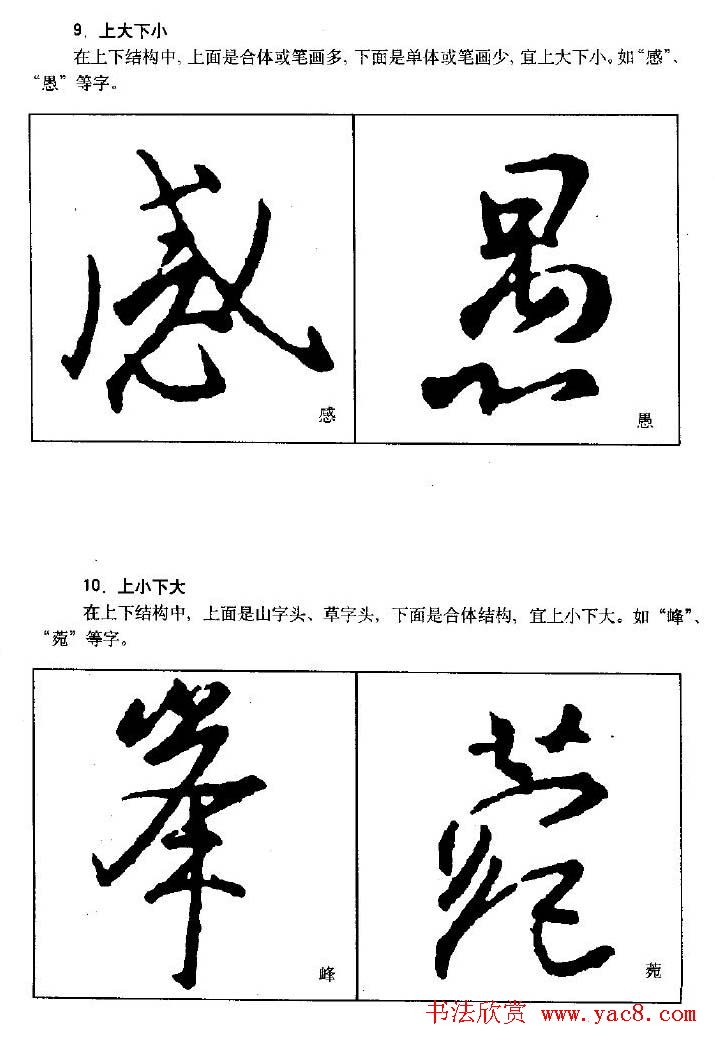 9. 上大下小
在上下结构中, 上面是合体或笔画多, 下面是单体或笔画少, 宜上大下小。如“感”、
“愚” 等字。
感 愚
感 愚
10. 上小下大
在上下结构中, 上面是山字头、草字头, 下面是合体结构, 宜上小下大。如 “峰”、
“菀” 等字。
峯 菀
峰 菀
书法欣赏 www.yac8.com